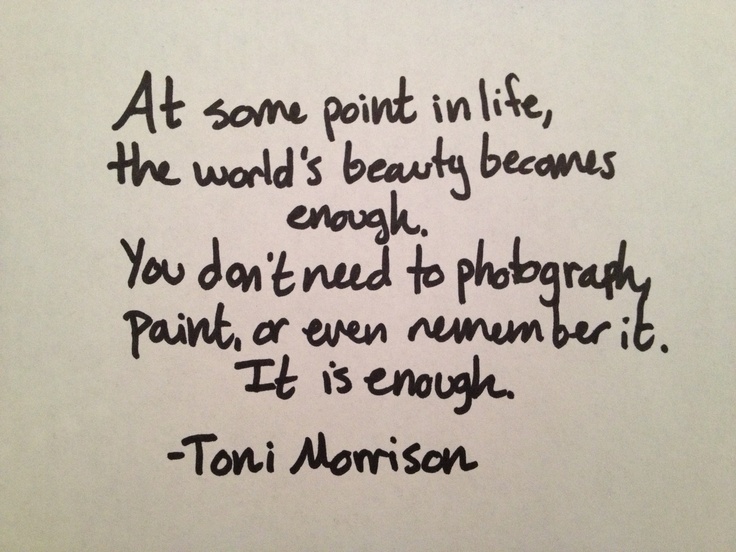 At some point in life,
the world's beauty becomes
enough.
You don't need to photograph,
paint, or even remember it.
It is enough.
-Toni Morrison